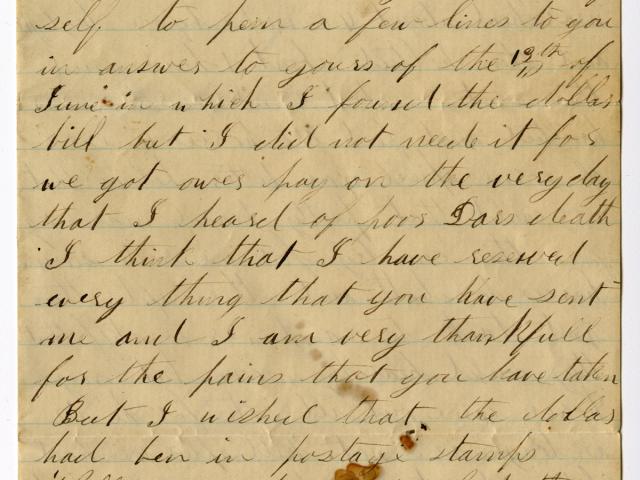 self to pern a few lines to you
in answer to yours of the 12th of
June in which I found the dollar
bill but I did not need it for
we got ower pay on the very day
that I heard of poor Dars death
I think that I have reserved
every thing that you have sent
me and I am very thankfull
for the pains that you have taken
But I wished that the dollar
had ben in postage stamps